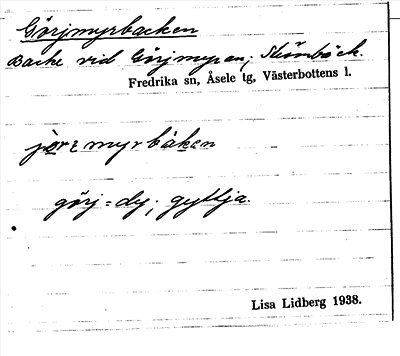 Görjmyrbacken
Backe vid Görjmyran, Strömbäck.
Fredrika sn, Åsele tg, Västerbottens l.
görj = dy, gyttja.
Lisa Lidberg 1938.